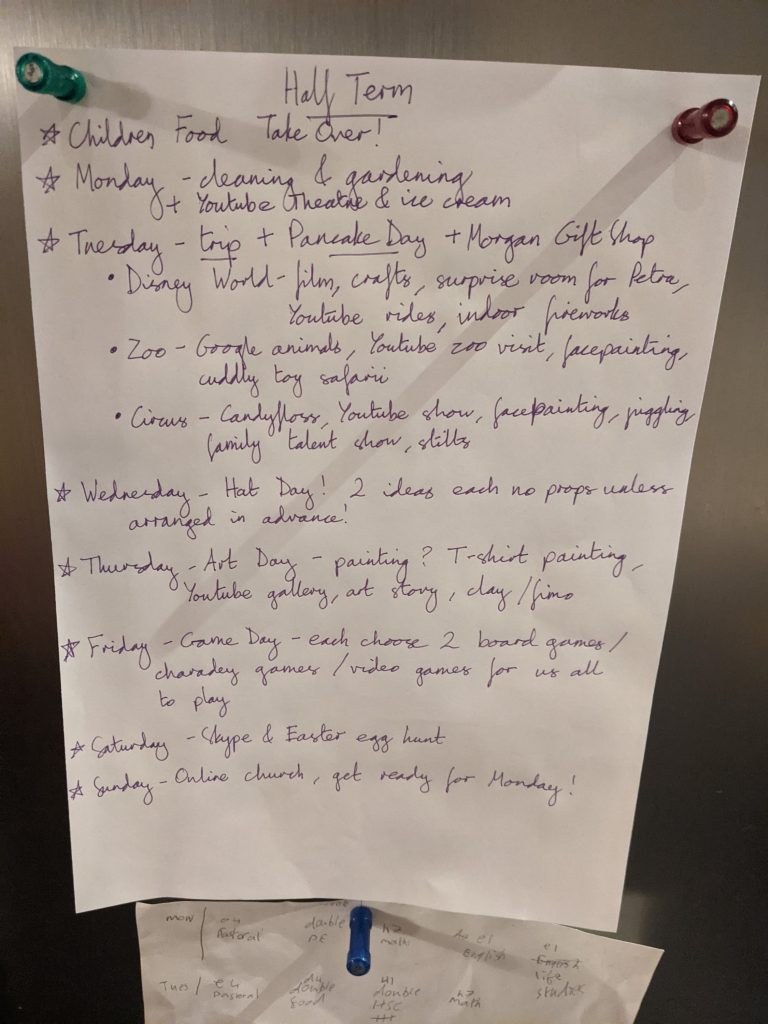 Half Term
☆ Children Food Take Over!
☆ Monday - cleaning & gardening
+ Youtube theatre & ice cream
☆ Tuesday - trip + Pancake Day + Morgan Gift Shop
• Disney World - film, crafts, surprise room for Petra,
Youtube rides, indoor fireworks
• Zoo - Google animals, Youtube zoo visit, facepainting,
cuddly toy safarii
• Circus - Candyfloss, Youtube show, facepainting, juggling,
family talent show, stilts
☆ Wednesday - Hat Day! 2 ideas each no props unless
arranged in advance!
☆ Thursday - Art Day - painting? T-shirt painting,
Youtube gallery, art story, clay/fimo
☆ Friday - Game Day - each choose 2 board games/
charadey games /video games for us all
to play
☆ Saturday - Skype & Easter egg hunt
☆ Sunday - Online church, get ready for Monday!
MON e4 double h2 e1
Pastoral PE math English English
life
studies
Tues e4 double double h2
Pastoral food HSC math